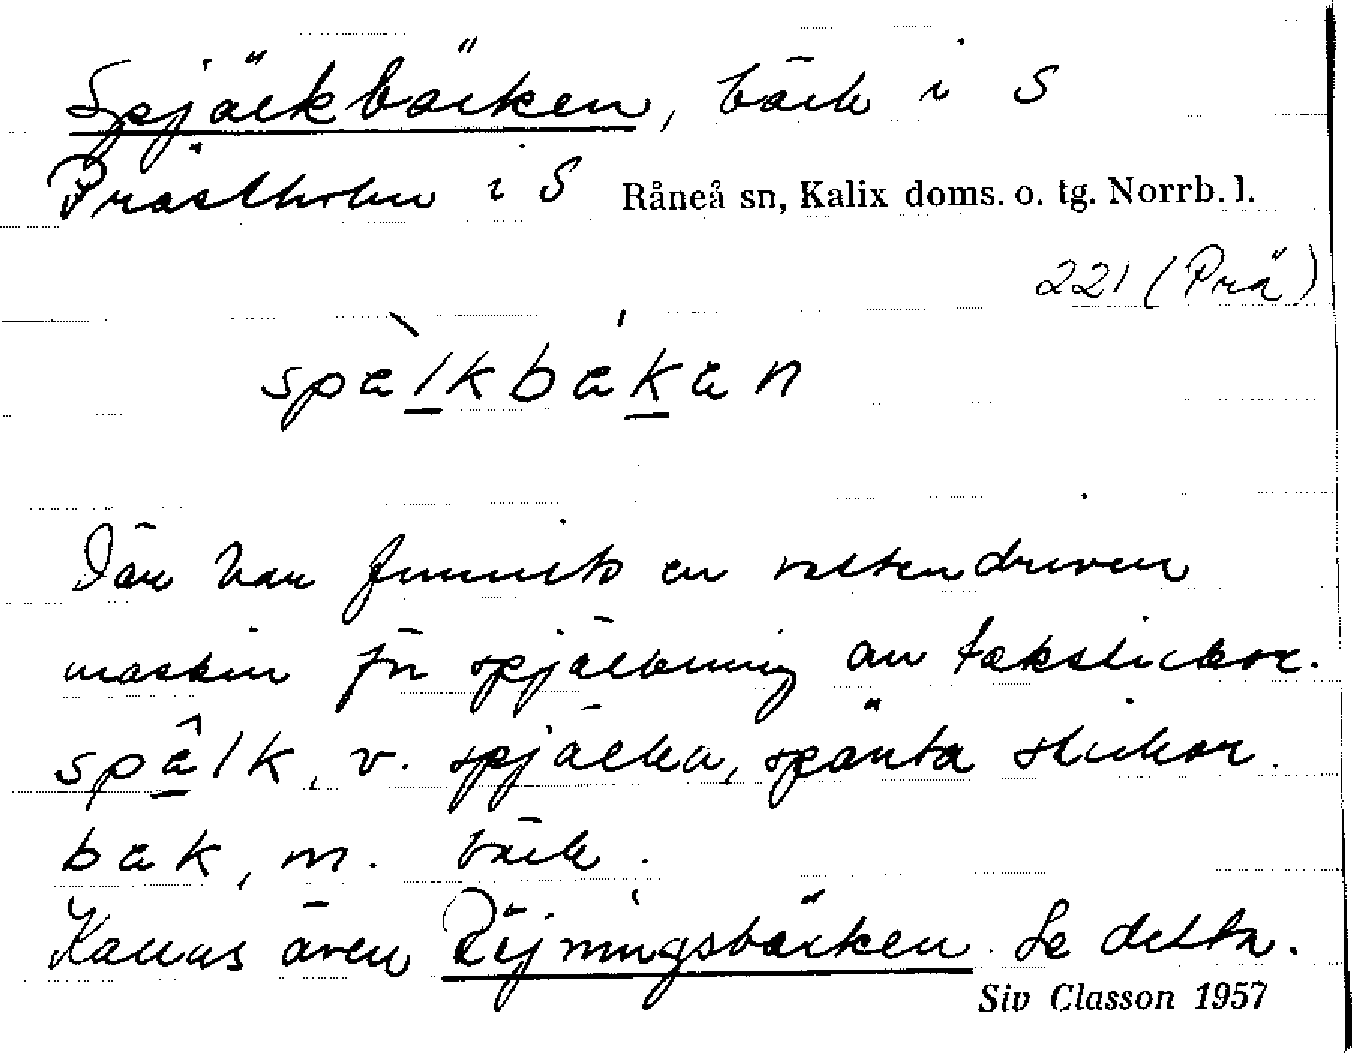 Spjälkbäcken, bäck i S
Prästholm i S Råneå sn, Kalix doms. o. tg. Norrb. l.
221 (Prä)
spalkbakan
Där har funnits en vattendriven
maskin för spjälkning av takstickor.
spâlk, v. spjälka, spänta stickor.
bak, m. bäck.
Kallas även Röjningsbäcken. Se detta.
Siv Classon 1957